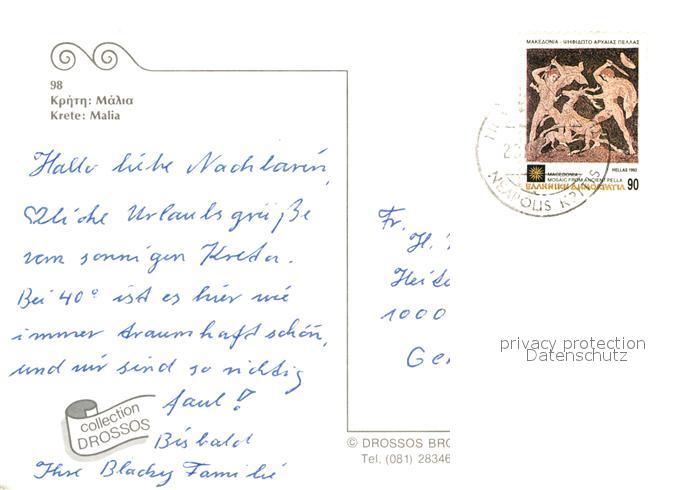 98
Κρήτη: Μάλια
Krete: Malia
Hallo liebe Nachbarin,
♡liche Urlaubsgrüße
vom sonnigen Kreta.
Bei 40° ist es hier wie
immer traumhaft schön,
und wir sind so richtig
faul!
Bis bald
Ihre Familie
collection
DROSSOS
ΜΑΚΕΔΟΝΙΑ - ΨΗΦΙΔΩΤΟ ΑΡΧΑΙΑΣ ΠΕΛΛΑΣ
HELLAS 1992
MAKEDONIA
MOSAIC FROM ANCIENT PELLA
ΕΛΛΗΝΙΚΗ ΔΗΜΟΚΡΑΤΙΑ 90
NEAPOLIS
Fr.
H.
1000
Ge
privacy protection
Datenschutz
© DROSSOS BRO
Tel. (081) 28346